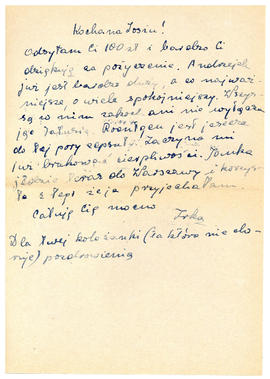 Kochana Zosiu!
Odsyłam Ci 100 zł i bardzo Ci
dziękuję za pożyczenie. Andrzejek
już jest bardzo duży, a co najważ-
niejsze, o wiele spokojniejszy. Wszys-
cy w nim ani nie wyłącza
jego Tatusia. Roentgen jest jeszcze
do tej pory zepsuty. Zaczyna mi
już brakować cierpliwości. Tomka
teraz do Warszawy i korzys-
ta z tego że ja przyjechałam.
Całuję Cię mocno
Irka
Dla twej koleżanki (ta która nie cho-
ruje) pozdrowienia